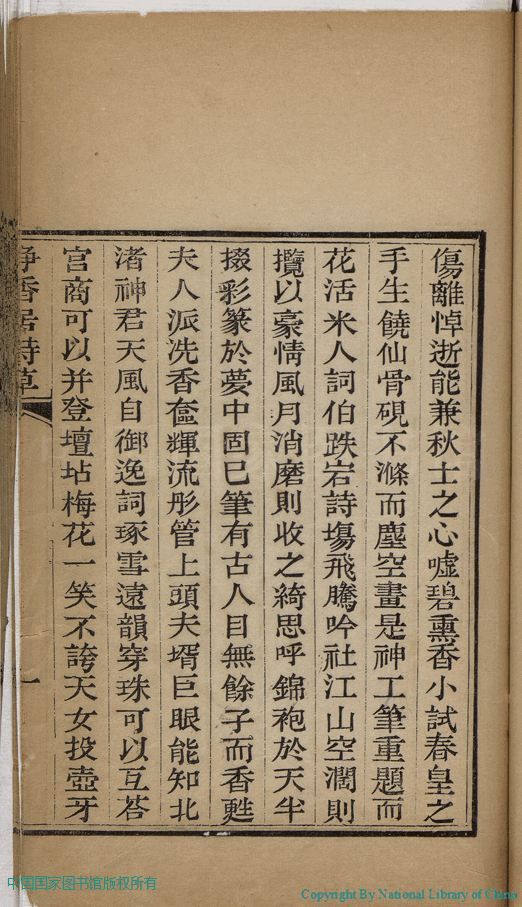 傷離悼逝能兼秋士之心噓碧熏香小試春皇之
手生饒仙骨硯不滌而塵空畫是神工筆重題而
花活米人詞伯跌宕詩場飛騰吟社江山空濶則
攬以豪情風月消磨則收之綺思呼錦袍於天半
掇彩篆於夢中固已筆有古人目無餘子而香甦
夫人派洗香奩輝流彤管上頭夫壻巨眼能知北
渚神君天風自御逸詞琢雪遠韻穿珠可以互荅
宮商可以并登壇坫梅花一笑不誇天女投壺牙
淨香居詩草
一
中国国家图书馆版权所有
Copyright By National Library of China